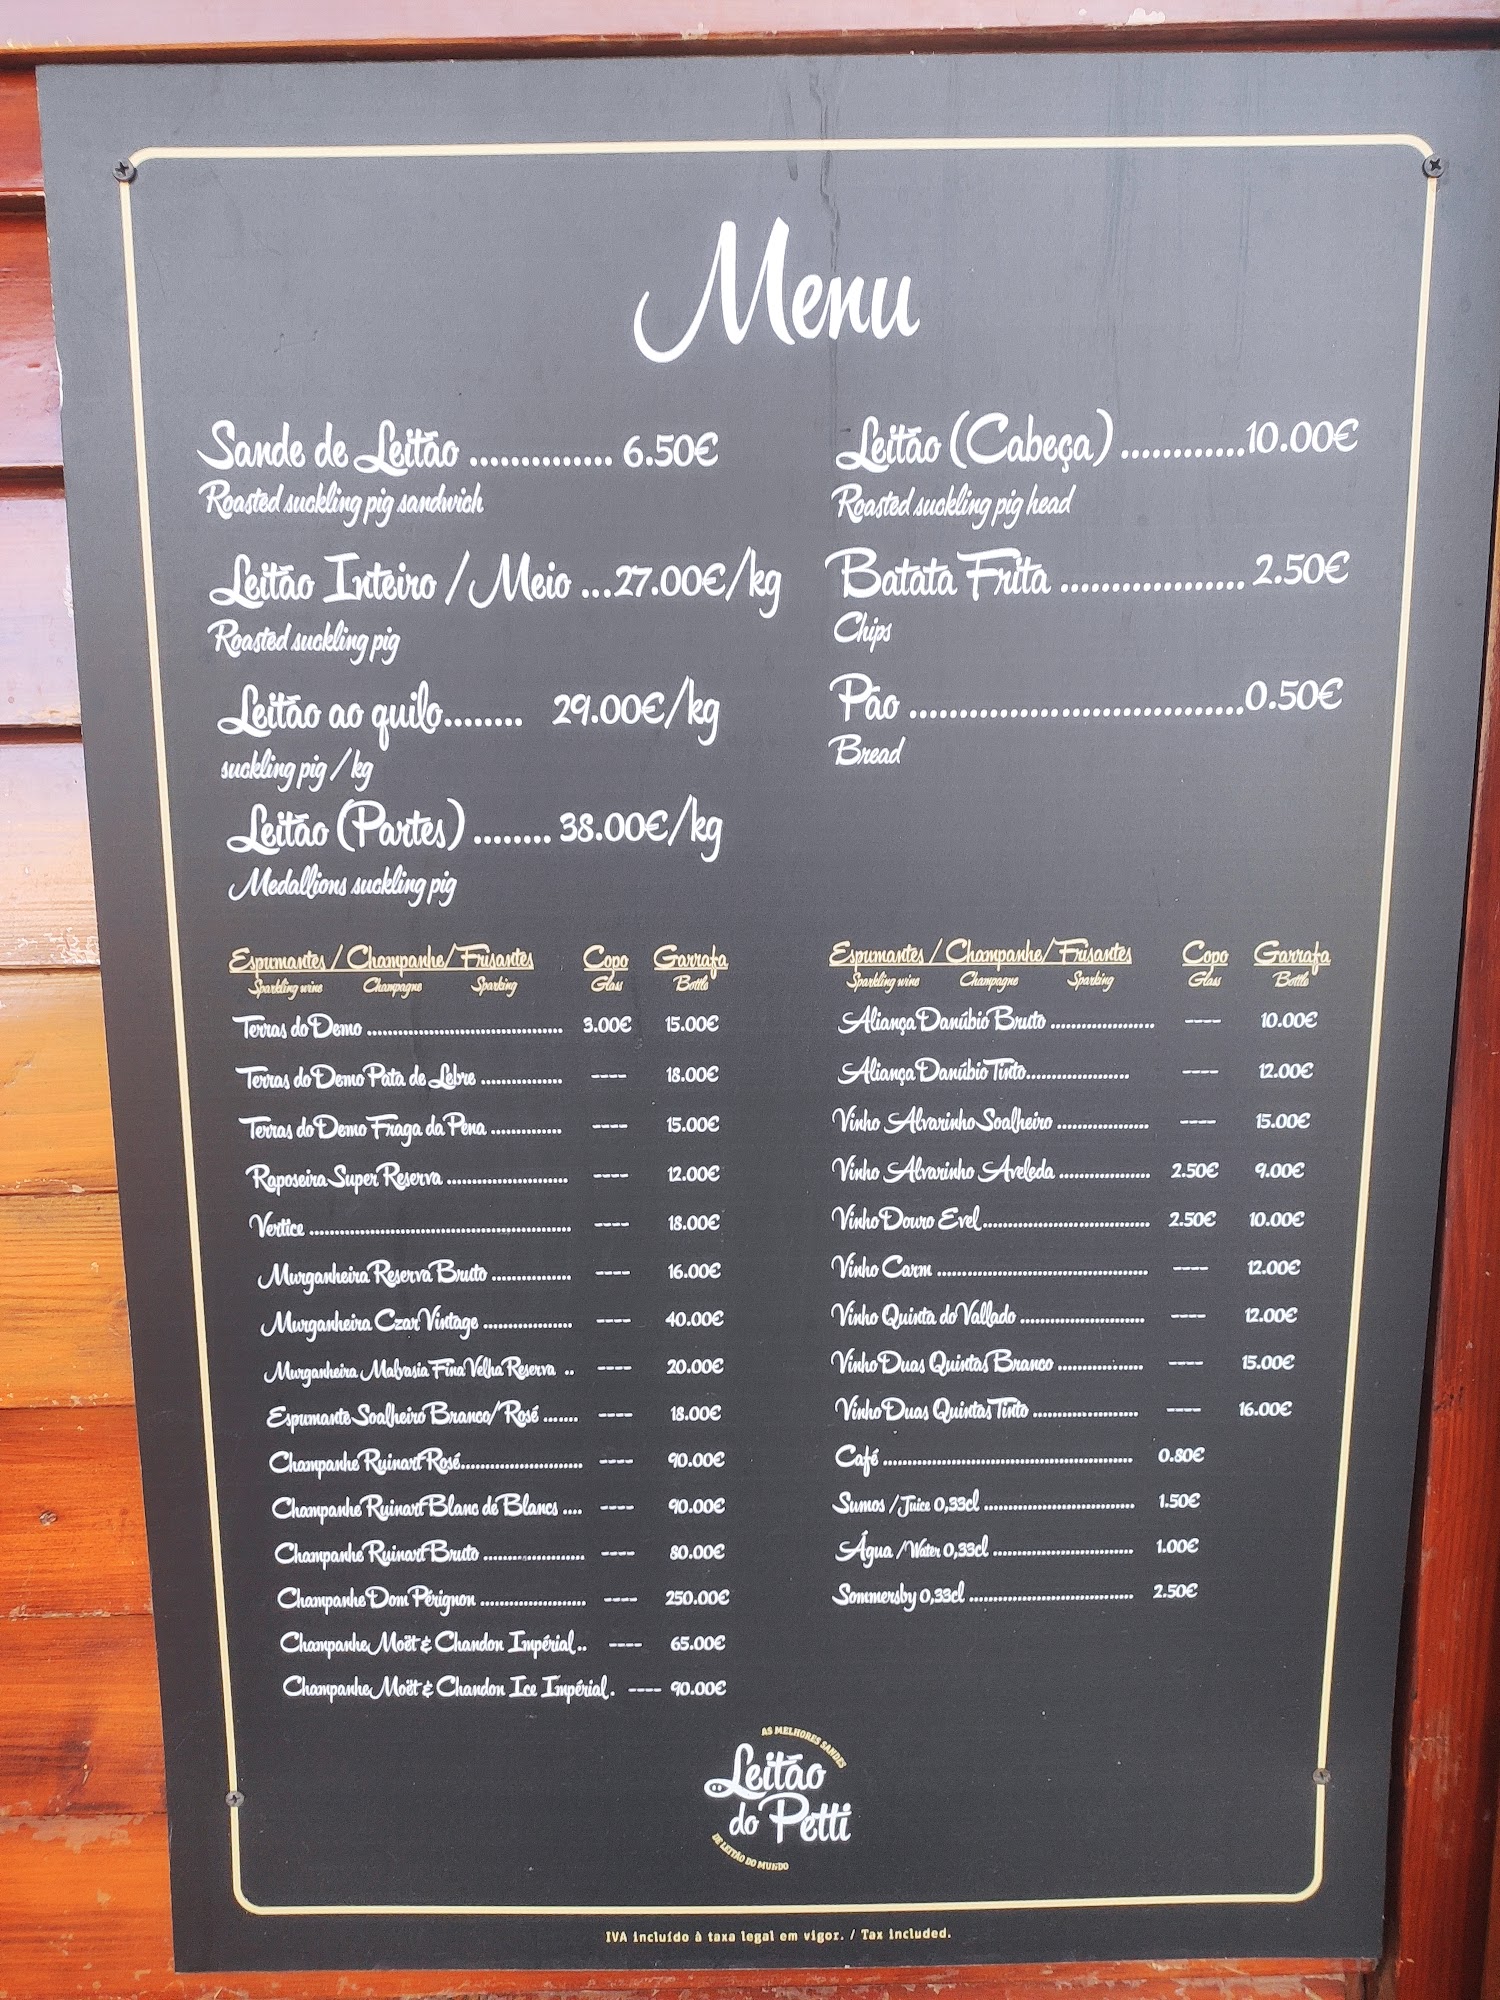 Menu
Sande de Leitão .............. 6.50€
Roasted suckling pig sandwich
Leitão Inteiro / Meio ...27.00€/kg
Roasted suckling pig
Leitão ao quilo........ 29.00€/kg
suckling pig / kg
Leitão (Partes) ........ 38.00€/kg
Medallions suckling pig
Leitão (Cabeça) ............10.00€
Roasted suckling pig head
Batata Frita .................. 2.50€
Chips
Pão .................................0.50€
Bread
Espumantes / Champanhe/ Frisantes Copo Garrafa
Sparkling wine Champagne Sparking Glass Bottle
Terras do Demo ...................................... 3.00€ 15.00€
Terras do Demo Pata de Lebre ................ ---- 18.00€
Terras do Demo Fraga da Pena .............. ---- 15.00€
Raposeira Super Reserva ........................ ---- 12.00€
Vertice ................................................... ---- 18.00€
Murganheira Reserva Bruto ................ ---- 16.00€
Murganheira Czar Vintage .................. ---- 40.00€
Murganheira Malvasia Fina Velha Reserva .. ---- 20.00€
Espumante Soalheiro Branco/ Rosé ........ ---- 18.00€
Champanhe Ruinart Rosé........................ ---- 90.00€
Champanhe Ruinart Blanc de Blancs .... ---- 90.00€
Champanhe Ruinart Bruto .................... ---- 80.00€
Champanhe Dom Pérignon ..................... ---- 250.00€
Champanhe Moët & Chandon Impérial.. ---- 65.00€
Champanhe Moët & Chandon Ice Impérial. ---- 90.00€
Espumantes / Champanhe/ Frisantes Copo Garrafa
Sparkling wine Champagne Sparking Glass Bottle
Aliança Danúbio Bruto .................... ---- 10.00€
Aliança Danúbio Tinto.................... ---- 12.00€
Vinho Alvarinho Soalheiro .................. ---- 15.00€
Vinho Alvarinho Aveleda .................. 2.50€ 9.00€
Vinho Douro Evel................................ 2.50€ 10.00€
Vinho Carm ......................................... ---- 12.00€
Vinho Quinta do Vallado ........................ ---- 12.00€
Vinho Duas Quintas Branco ................ ---- 15.00€
Vinho Duas Quintas Tinto .................... ---- 16.00€
Café ................................................ 0.80€
Sumos / Juice 0,33cl ............................. 1.50€
Água / Water 0,33cl ........................... 1.00€
Sommersby 0,33cl ................................ 2.50€
AS MELHORES SANDES
Leitão
do Petti
DE LEITÃO DO MUNDO
IVA incluído à taxa legal em vigor. / Tax included.